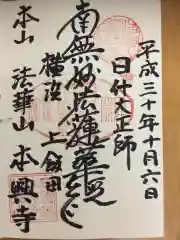 平成三十年十月六日
日什大正師
南無妙法蓮華経
横浜 上飯田
本山 法華山 本興寺